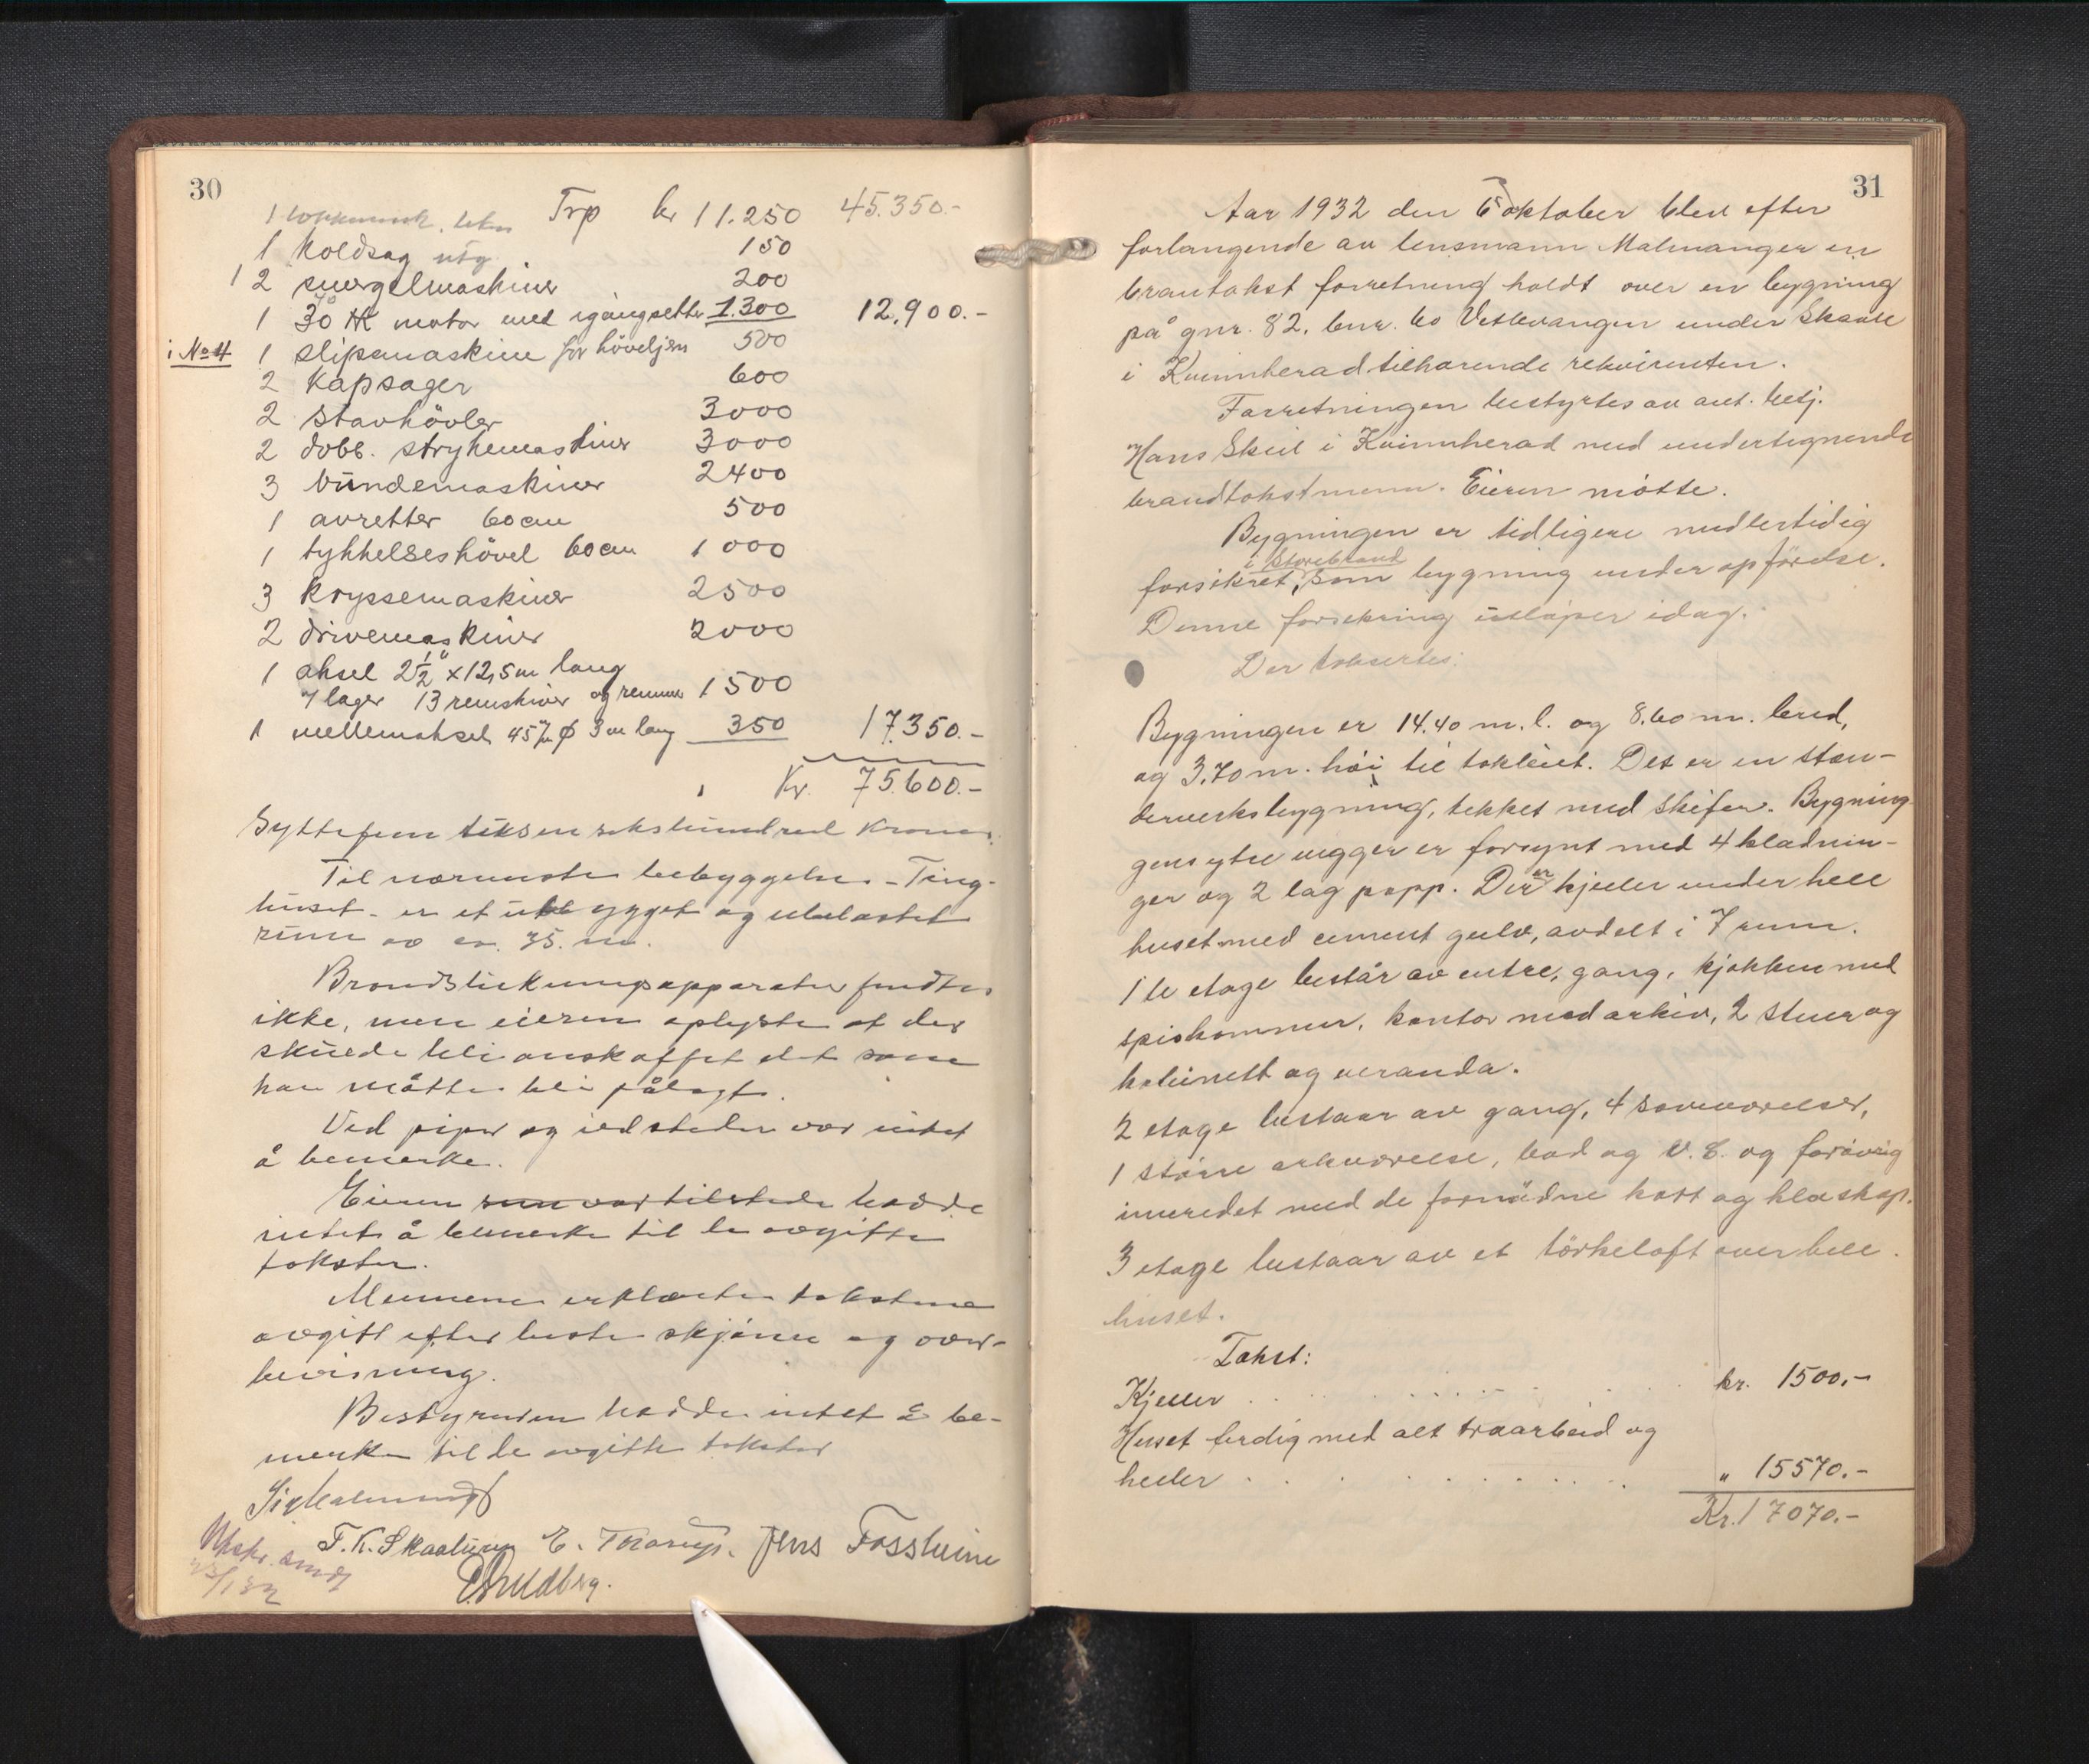 30
Trp kr 11.250 45.350.-
1 Koldsag utg 150
1 2 smergelmaskiner 200
1 30 HK motor med igangsetter 1.300 12.900.-
i No 4 1 slipemaskine for höveljern 500
2 Kapsager 600
2 Stavhövler 3000
2 dobb. strykemaskiner 3000
3 bundemaskiner 2400
1 avretter 60 cm 500
1 tykkelseshövel 60 cm 1000
3 Kryssemaskiner 2500
2 drivemaskiner 2000
1 aksel 2½" x 12,5 m lang
7 lager 13 remskiver og remmer 1500
1 mellemaksel 45 m/m ø 3 m lang 350 17.350.-
Kr. 75.600.-
Syttifem tusen sekshundred Kroner.
Til nærmeste bebyggelse - Ting-
huset - er et ubebygget og ubelastet
rum av ca. 35. m.
Brandslukningsapparater fandtes
ikke, men eieren oplyste at der
skulde bli anskaffet det som
han måtte bli pålagt.
Ved piper og ildsteder var intet
å bemerke.
Eieren som var tilstede hadde
intet å bemerke til de avgitte
takster.
Mennene erklærte takstene
avgitt efter beste skjönn og over-
bevisning.
Bestyreren hadde intet å be-
merke til de avgitte takster
F. K. Skaaluren E. Thorup. Jens Fossheim
Utskr. sendt
31
Aar 1932 den 6 oktober blev efter
forlangende av lensmann Malmanger en
brantakst forretning holdt over en bygning
på gnr. 82, bnr. 60 Vetlevangen under Skaale
i Kvinnherad tilhørende rekvirenten.
Forretningen bestyrtes av aut. betj.
Hans Skeil i Kvinnherad med undertegnende
brandtakstmenn. Eieren mötte.
Bygningen er tidligere midlertidig
i Storebrand
forsikret, som bygning under opförelse.
Denne forsikring utløper idag.
Der takseres:
Bygningen er 14.40 m. l. og 8.60 m. bred,
og 3.70 m. høi til takleist. Det er en stæn-
derverksbygning, tekket med skifer. Bygning-
gens ytre vegger er forsynt med 4 kladnin-
ger og 2 lag papp. Der er kjeller under hele
huset med cement gulv, avdelt i 7 rum.
1ste etage består av entre, gang, kjøkken med
spiskammer, kontor med arkiv, 2 stuer og
kabinett og veranda.
2 etage bestaar av gang, 4 soveværelser,
1 större arkværelse, bad og V. C. og forövrig
inredet med de fornödne kott og klæskap.
3 etage bestaar av et törkeloft over hele
huset.
Takst:
Kjeller . . . . . . . kr. 1500,-
Huset ferdig med alt træarbeid og
heller . . . . . . . " 15570.-
Kr. 17070.-